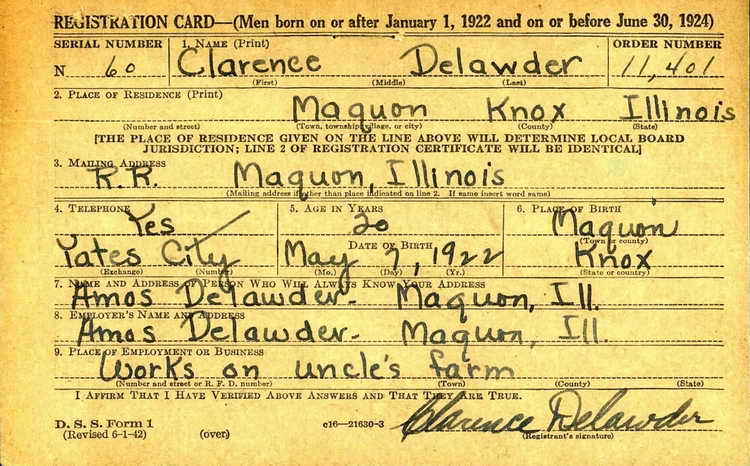 REGISTRATION CARD—(Men born on or after January 1, 1922 and on or before June 30, 1924)
SERIAL NUMBER 1. NAME (Print) ORDER NUMBER
N 60 Clarence Delawder 11,401
(First) (Middle) (Last)
2. PLACE OF RESIDENCE (Print)
Maquon Knox Illinois
(Number and street) (Town, township, village, or city) (County) (State)
[THE PLACE OF RESIDENCE GIVEN ON THE LINE ABOVE WILL DETERMINE LOCAL BOARD
JURISDICTION; LINE 2 OF REGISTRATION CERTIFICATE WILL BE IDENTICAL]
3. MAILING ADDRESS
R.R. Maquon, Illinois
(Mailing address if other than place indicated on line 2. If same insert word same)
4. TELEPHONE 5. AGE IN YEARS 6. PLACE OF BIRTH
Yes 20 Maquon
DATE OF BIRTH (Town or county)
Yates City May 7, 1922 Knox
(Exchange) (Number) (Mo.) (Day) (Yr.) (State or country)
7. NAME AND ADDRESS OF PERSON WHO WILL ALWAYS KNOW YOUR ADDRESS
Amos Delawder- Maquon, Ill.
8. EMPLOYER'S NAME AND ADDRESS
Amos Delawder- Maquon, Ill.
9. PLACE OF EMPLOYMENT OR BUSINESS
Works on uncle's farm
(Number and street or R. F. D. number) (Town) (County) (State)
I AFFIRM THAT I HAVE VERIFIED ABOVE ANSWERS AND THAT THEY ARE TRUE.
D. S. S. Form 1 Clarence Delawder
(Revised 6-1-42) (over) c16—21630-3 (Registrant's signature)